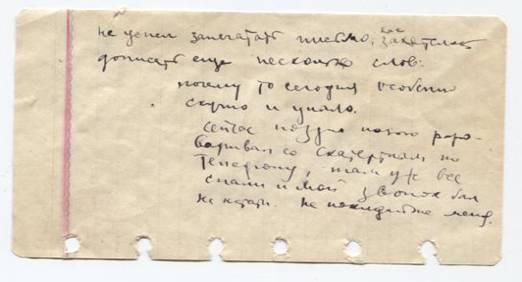 не успел запечатать письмо, как захотелось
дописать еще несколько слов:
почему то сегодня особенно
скучно и уныло.
сейчас поздно ночью разго-
варивал со Скатертным по
телефону, там уже все
спали и мой звонок был
не кстати. Не покидайте меня.